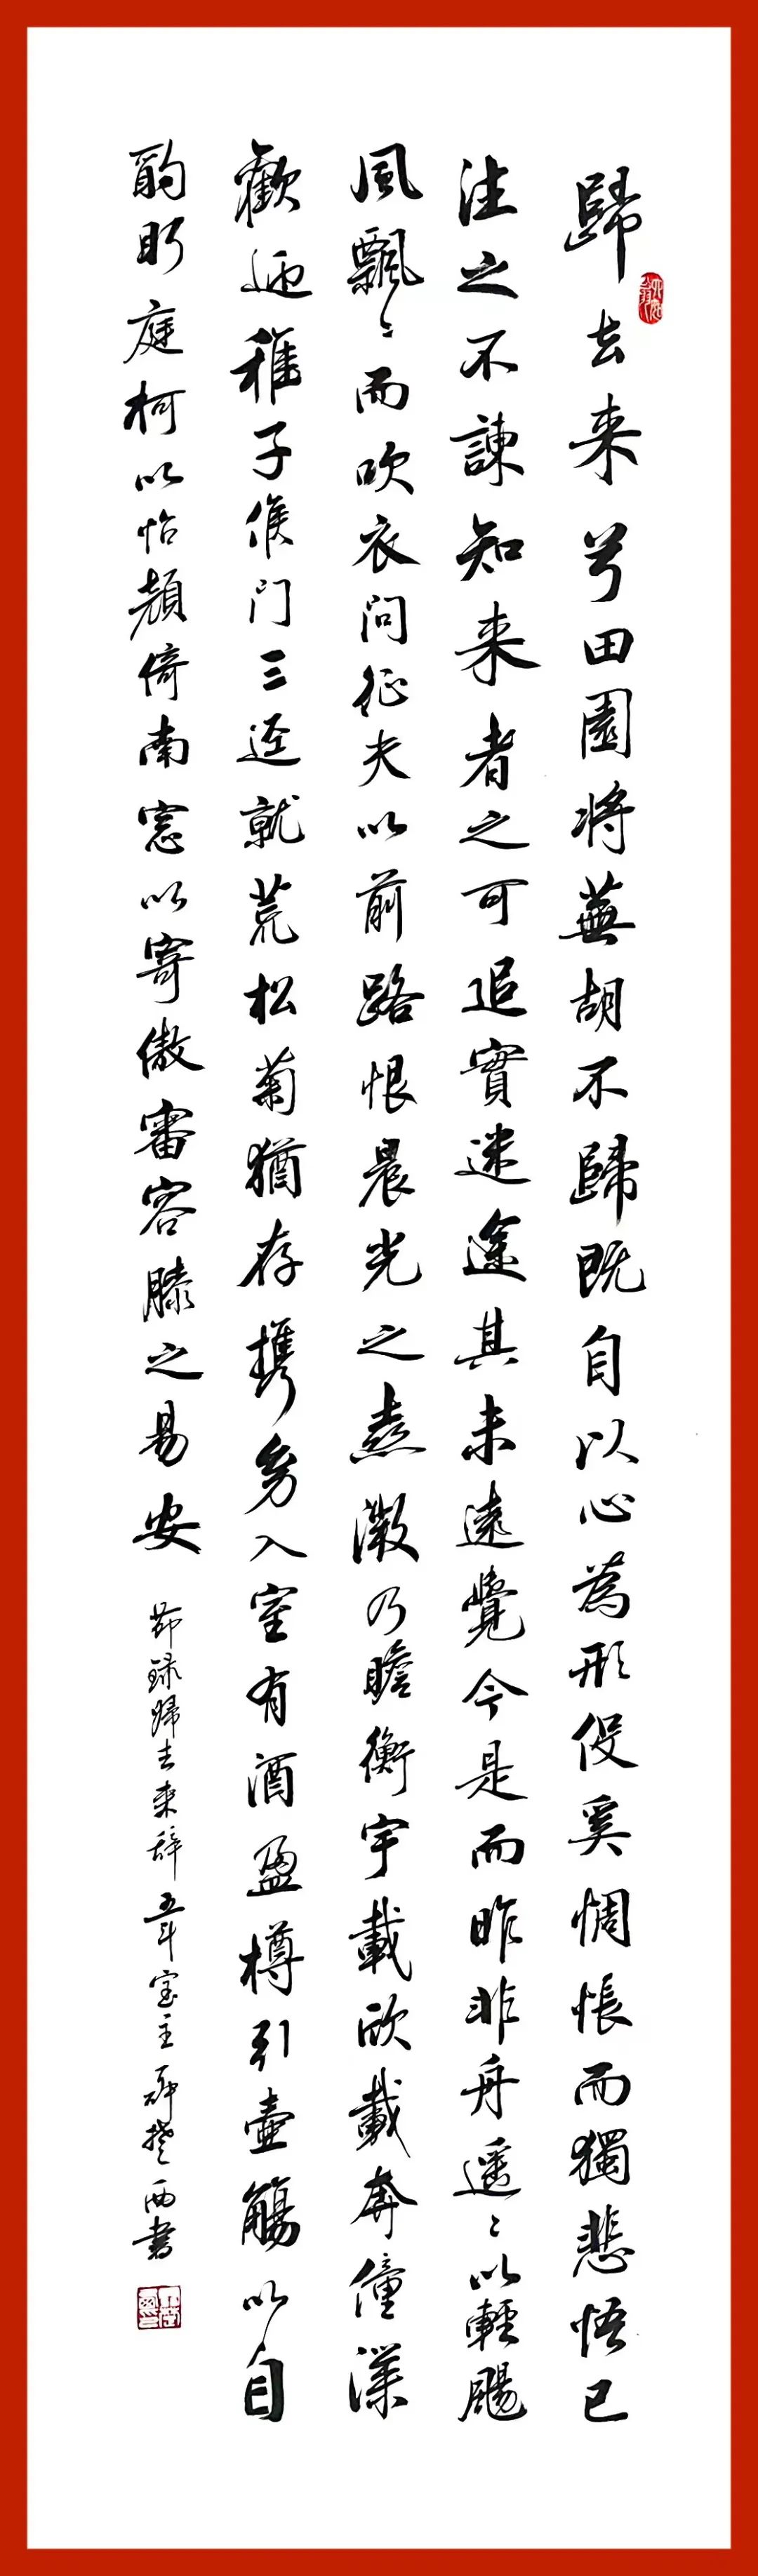 歸去来兮田園将蕪胡不歸既自以心為形役奚惆悵而獨悲悟已
往之不諫知来者之可追實迷途其未遠覺今是而昨非舟遥〻以輕颺
風飄〻而吹衣问征夫以前路恨晨光之熹微乃瞻衡宇載欣載奔僮僕
歡迎稚子候门三迳就荒松菊猶存携幼入室有酒盈樽引壺觴以自
酌眄庭柯以怡顔倚南窓以寄傲審容膝之易安
節録歸去来辞
室主
西書